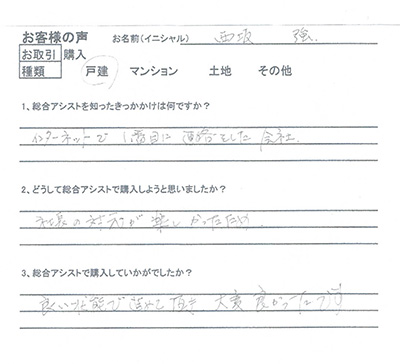 お客様の声 お名前(イニシャル) 西坂 強
お取引 購入
種類 戸建 マンション 土地 その他
1、総合アシストを知ったきっかかけは何ですか?
インターネットで 1番目に 連絡をした 会社
2、どうして総合アシストで購入しようと思いましたか?
社長の対応が 楽しかったため
3、総合アシストで購入していかがでしたか?
良い状態で 進めて頂き 大変 良かったです